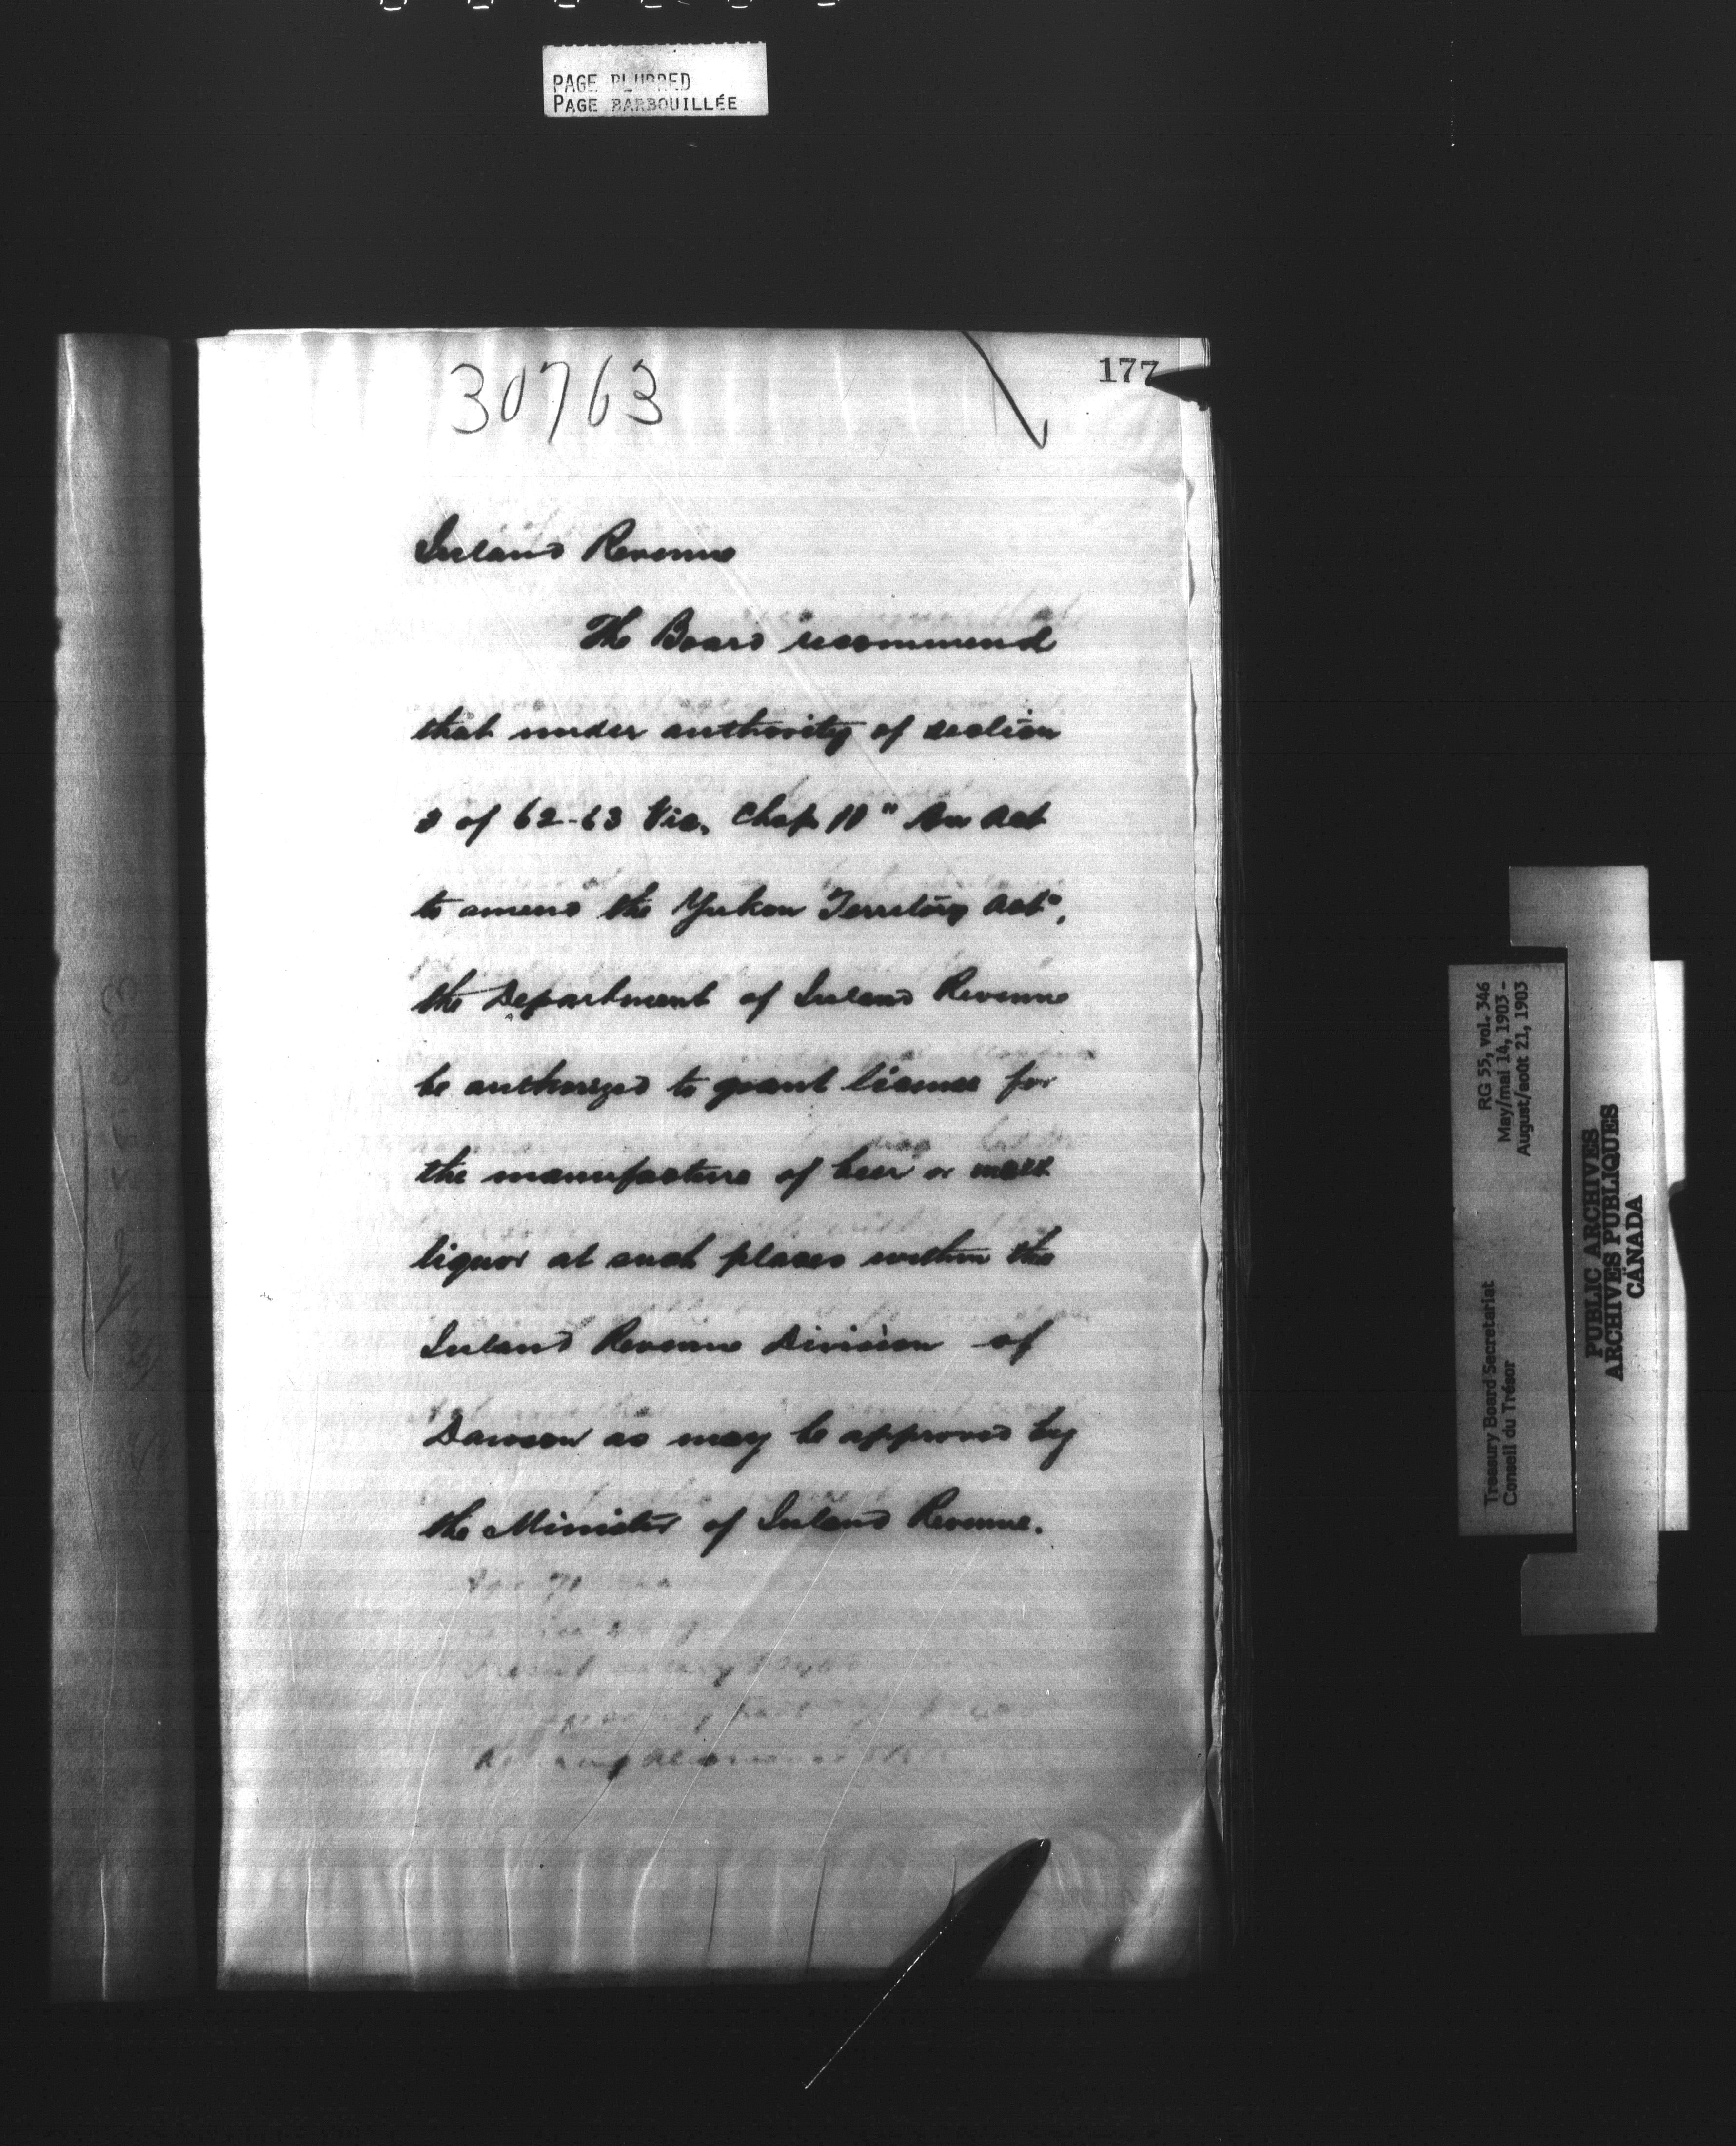 PAGE BLURRED
PAGE BARBOUILLÉE
177
30763
Inland Revenue
The Board recommend
that under authority of section
of 62-63 Vic. Chap 11 " An Act
to amend the Yukon Territory Act",
the Department of Inland Revenue
be authorized to grant licenses for
the manufacture of beer or malt
liquor at such places within the
Inland Revenue Division of
Dawson as may be approved by
the Minister of Inland Revenue.
RG 55, vol. 346
May/mai 14, 1903 -
August/août 21, 1903
Treasury Board Secretariat
Conseil du Trésor
PUBLIC ARCHIVES
ARCHIVES PUBLIQUES
CANADA